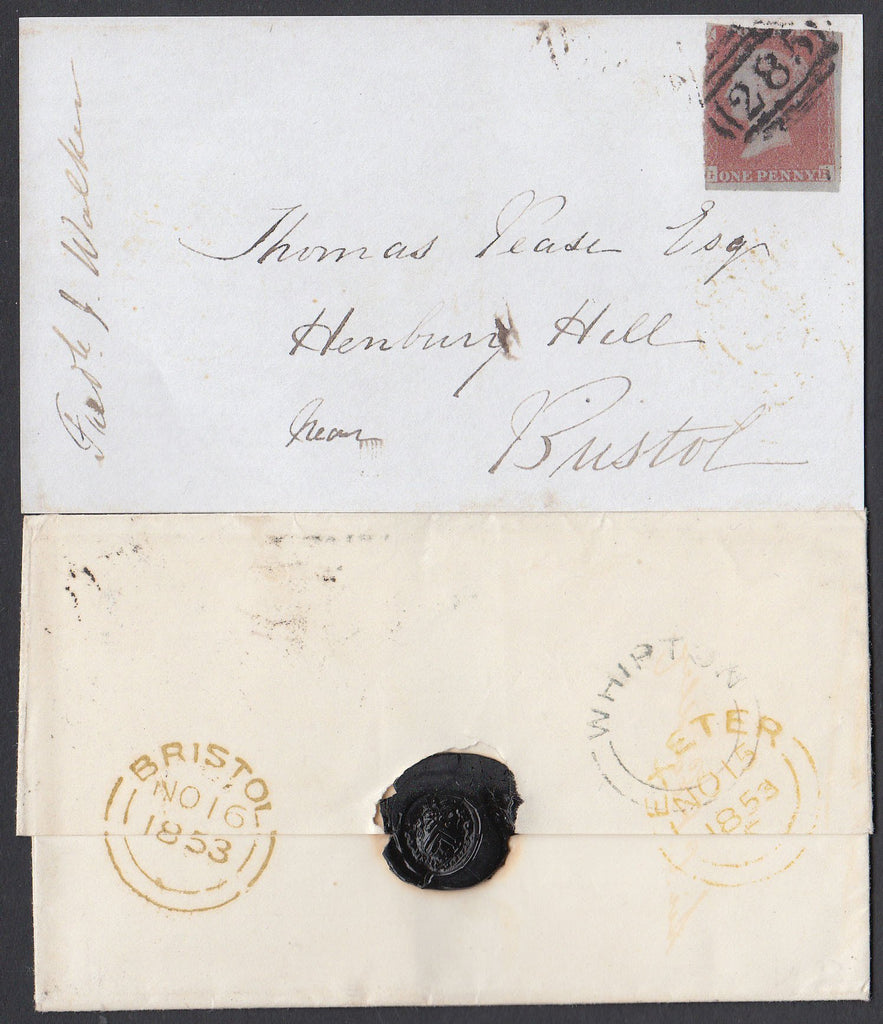 285
ONE PENNY
Fredk. J. Walker
Thomas Pease Esq
Henbury Hill
Near
Bristol
WHIPTON
BRISTOL
NO 16
1853
EXETER
NO 15
1853